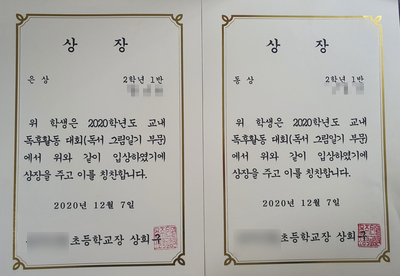 상 장
은 상
2학년 1반
위 학생은 2020학년도 교내
독후활동 대회(독서 그림일기 부문)
에서 위와 같이 입상하였기에
상장을 주고 이를 칭찬합니다.
2020년 12월 7일
초등학교장 상회
상 장
동 상
2학년 1반
위 학생은 2020학년도 교내
독후활동 대회(독서 그림일기 부문)
에서 위와 같이 입상하였기에
상장을 주고 이를 칭찬합니다.
2020년 12월 7일
초등학교장 상회